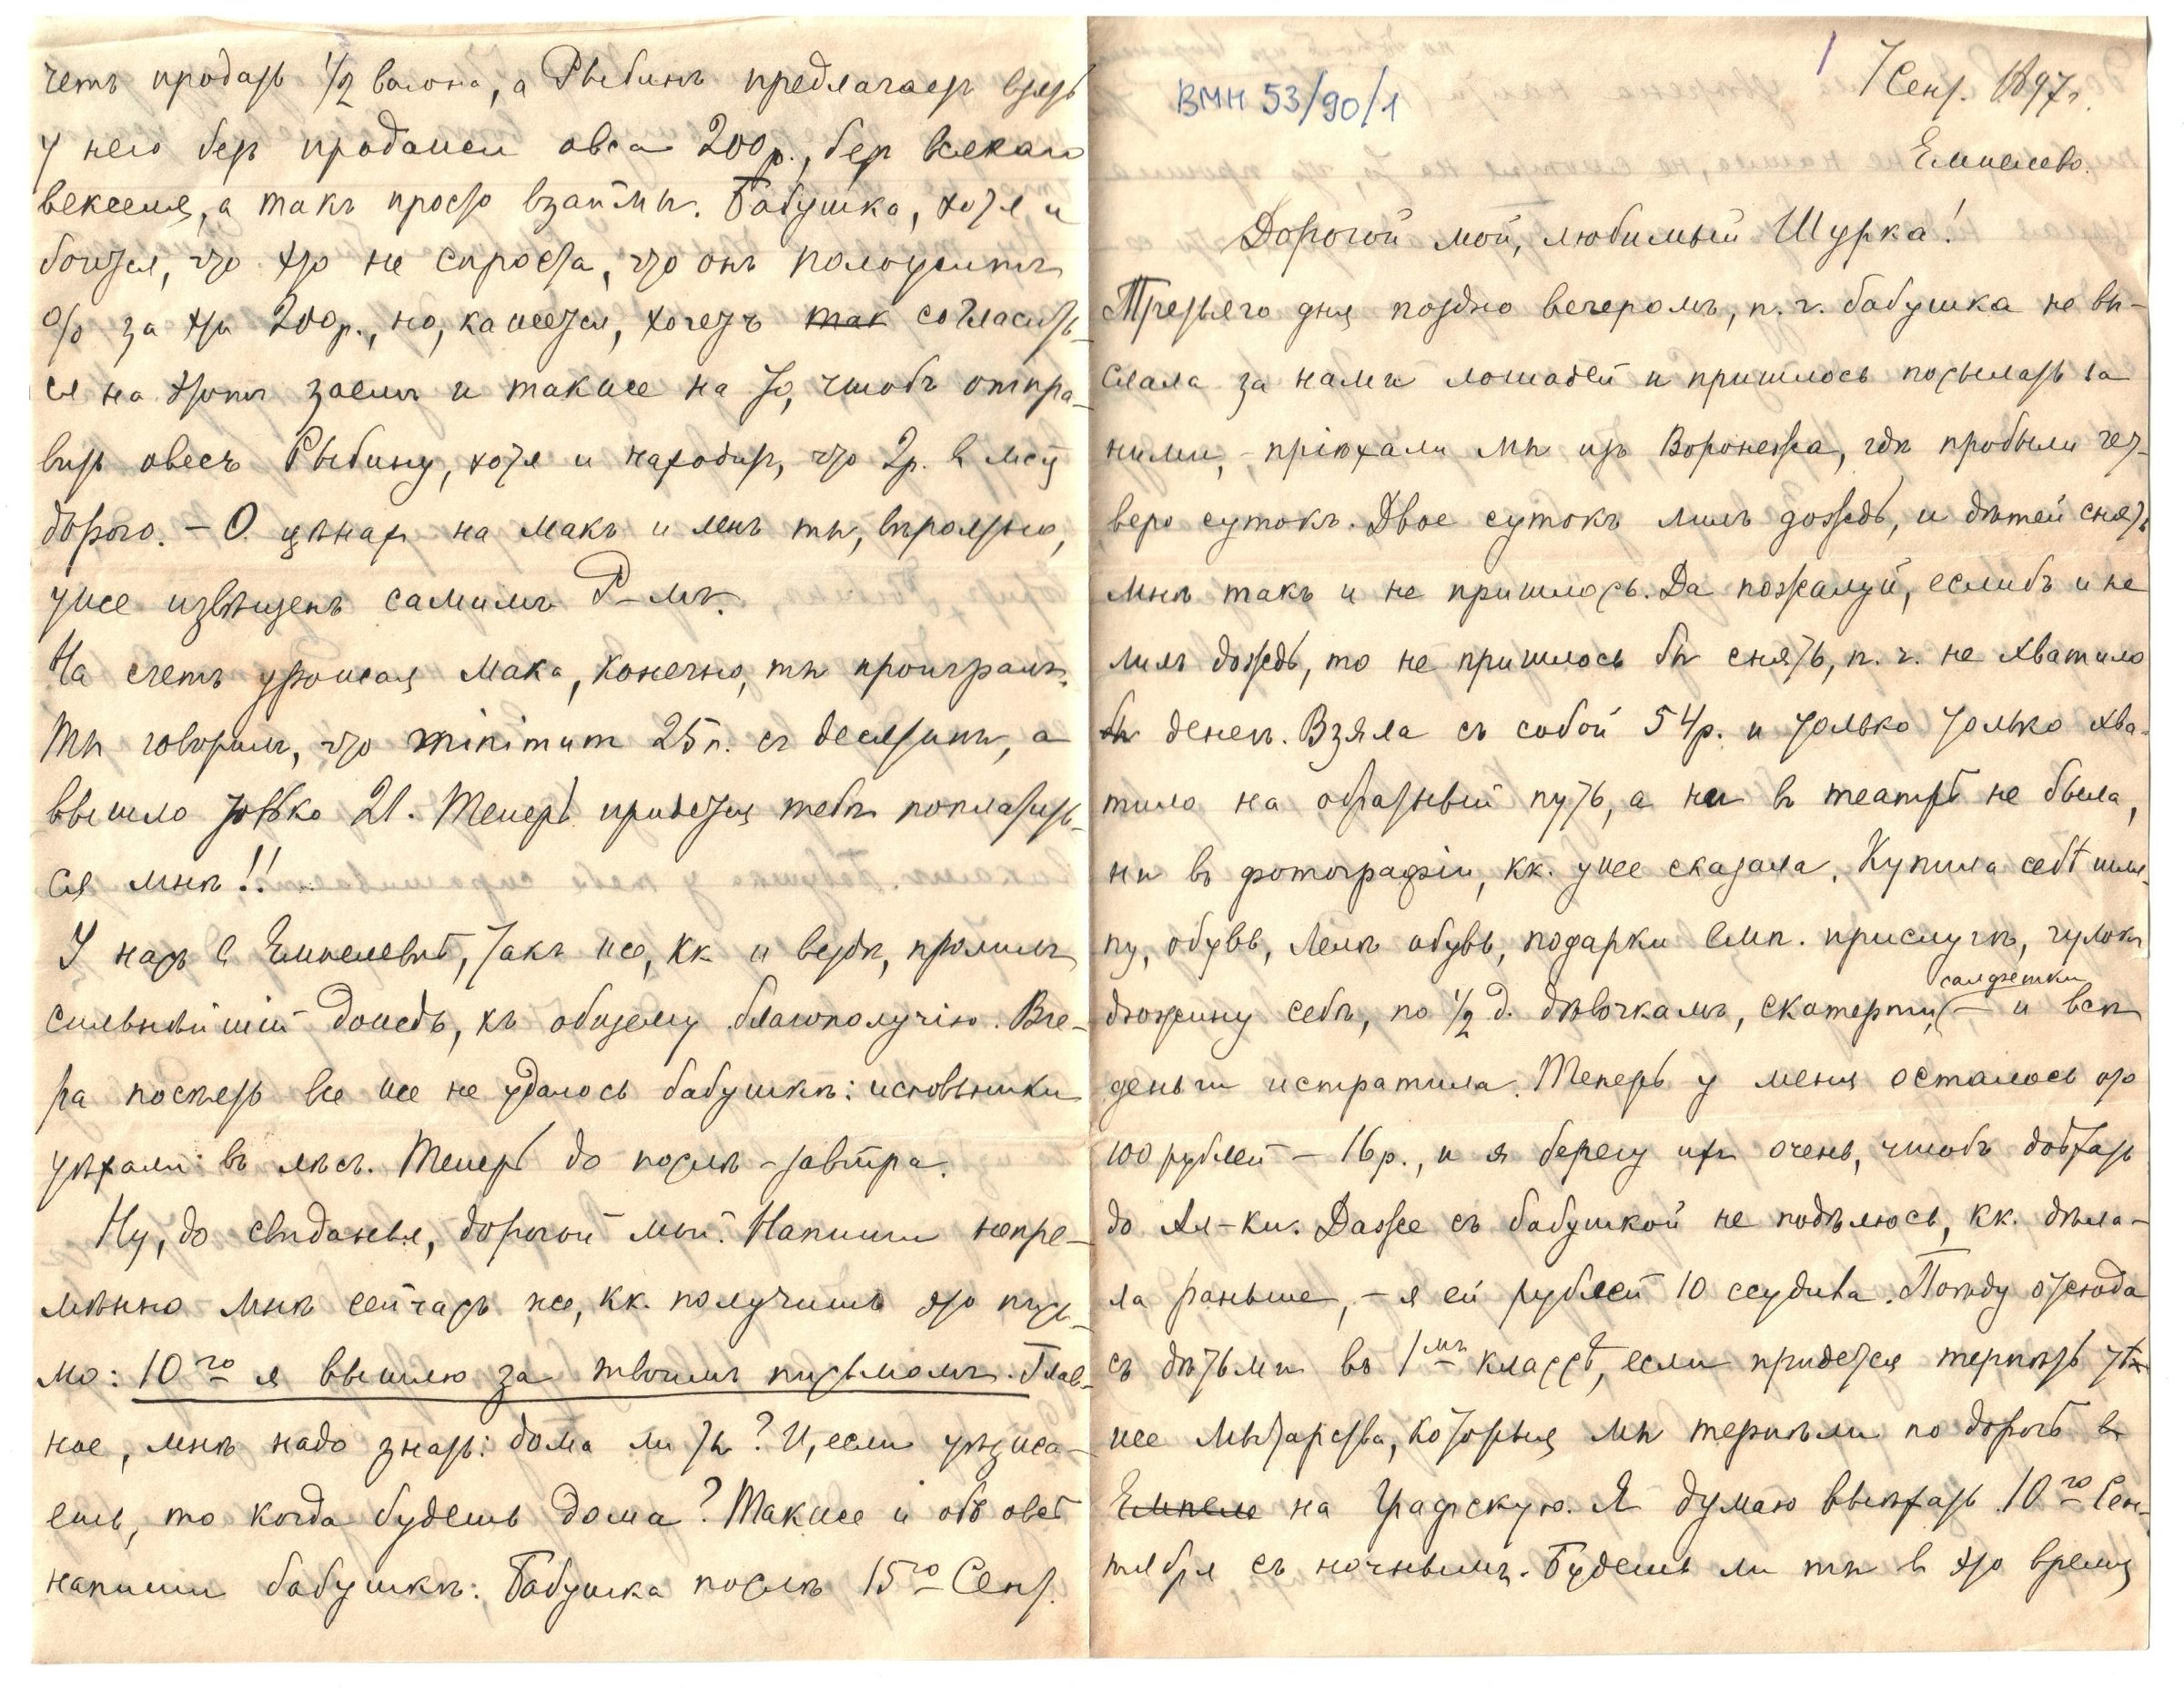 1
7 Сент. 1897 г.
ВМН 53/90/1
Емпелево.
Дорогой мой, любимый Шурка!
Третьяго дня поздно вечеромъ, п. ч. бабушка не вы-
слала за нами лошадей и пришлось посылать за
ними, – пріѣхали мы изъ Воронежа, гдѣ пробыли чет-
веро сутокъ. Двое сутокъ лилъ дождь, и дѣтей снять
мнѣ такъ и не пришлось. Да пожалуй, еслибъ и не
лилъ дождь, то не пришлось бы снять, п. ч. не хватило
бы денегъ. Взяла съ собой 54 р. и только только хва-
тило на обратный путь, а ни въ театрѣ не была,
ни въ фотографіи, кк. уже сказала. Купила себѣ шля-
пу, обувь, Лелѣ обувь, подарки емп. прислугѣ, чулокъ
дюжину себѣ, по 1/2 д. дѣвочкамъ, скатерти, салфетки – и всѣ
деньги истратила. Теперь у меня осталось отъ
100 рублей – 16 р., и я берегу ихъ очень, чтобъ доѣхать
до Ал-ки. Даже съ бабушкой не подѣлюсь, кк. дѣла-
ла раньше, – я ей рублей 10 ссудила. Поѣду отсюда
съ дѣтьми въ 1мъ классѣ, если придется терпѣть тѣ
же мытарства, которыя мы терпѣли по дорогѣ въ
Емпеле на Графскую. Я думаю выѣхать 10го Сен-
тября съ ночнымъ. Будешь ли ты в это время
четъ продать 1/2 вагона, а Рыбинъ предлагаетъ взять
у него безъ продажи овса 200 р., без всякаго
векселя, а такъ просто взаймы. Бабушка, хотя и
боится, что это не спроста, что онъ положитъ
% за эти 200 р., но, кажется, хочетъ так согласить-
ся на этотъ заемъ и также на то, чтобъ отпра-
вить овесъ Рыбину, хотя и находитъ, что 2 р. в мсц
дорого. – О цѣнах на макъ и ленъ ты, вѣроятно,
уже извѣщенъ самимъ Р-мъ.
На счетъ урожая мака, конечно, ты проигралъ.
Ты говорилъ, что minimum 25 п. съ десятины, а
вышло только 21. Теперь придется тебѣ поплатить-
ся мнѣ!!
У насъ в Емпелевѣ, такъ же, кк и вездѣ, пролилъ
сильнѣйшій дождь, къ общему благополучію. Вче-
ра посѣять все же не удалось бабушкѣ: исповѣники
уѣхали въ лѣсъ. Теперь до послѣ-завтра.
Ну, до свиданья, дорогой мой. Напиши непре-
мѣнно мнѣ сейчасъ же, кк. получишь это пись-
мо: 10го я вышлю за твоимъ письмомъ. Глав-
ное, мнѣ надо знать: дома ли ты? И, если уѣзжа-
ешь, то когда будешь дома? Также и объ овсѣ
напиши бабушкѣ: Бабушка послѣ 15го Сент.